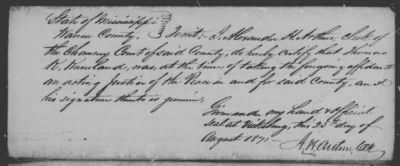 State of Mississippi
Warren County, To wit: I, Alexander H. Arthur, Clerk of
the Chancery Court of said County, do hereby certify that Thomas
was at the time of taking the foregoing affidavit
an acting Justice of the Peace in and for said County, and
his signature thereto is genuine.
Given under my hand & Official
Seal at Vicksburg, this 23rd day of
August 1871
A. H. Arthur, Clk